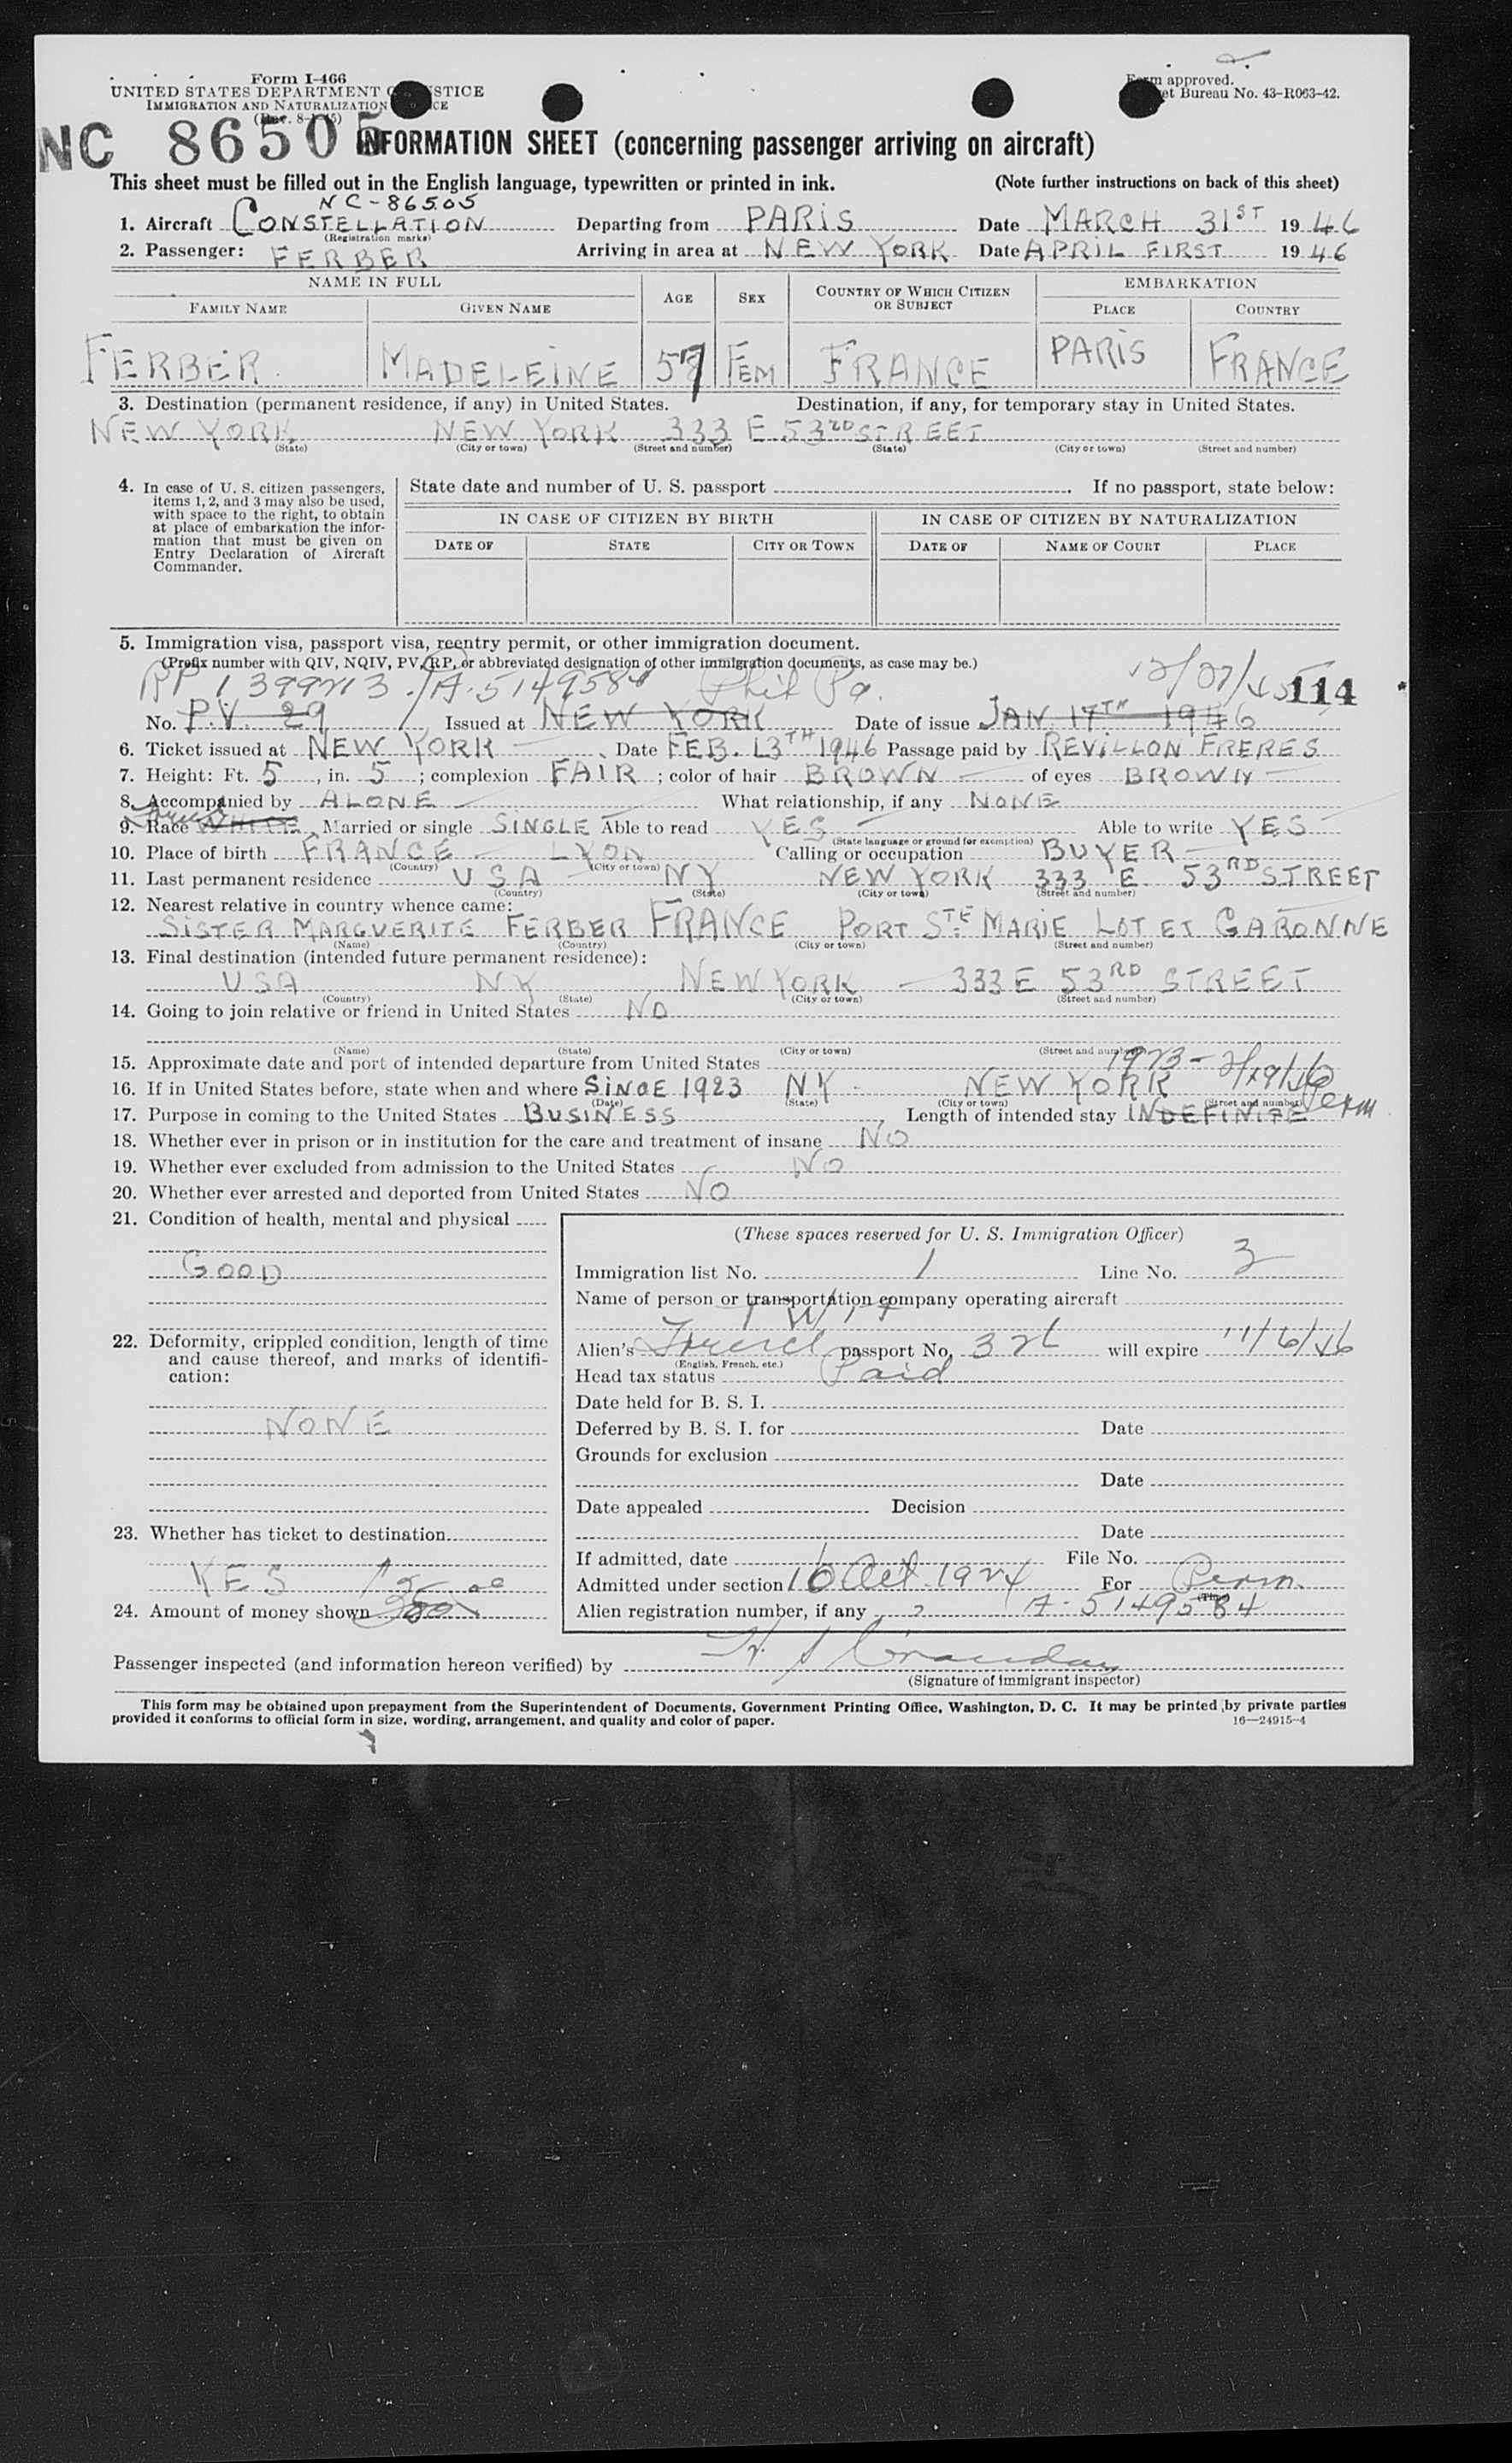 Form I-466
UNITED STATES DEPARTMENT STICE
IMMIGRATION AND NATURALIZATION CE
Form approved.
et Bureau No. 43-R063-42.
NC 86505
INFORMATION SHEET (concerning passenger arriving on aircraft)
This sheet must be filled out in the English language, typewritten or printed in ink. (Note further instructions on back of this sheet)
NC-86505
1. Aircraft CONSTELLATION Departing from PARIS Date MARCH 31ST 1946
(Registration marks)
2. Passenger: FERBER Arriving in area at NEW YORK Date APRIL FIRST 1946
NAME IN FULL AGE SEX COUNTRY OF WHICH CITIZEN OR SUBJECT EMBARKATION
FAMILY NAME GIVEN NAME PLACE COUNTRY
FERBER MADELEINE 57 FEM FRANCE PARIS FRANCE
3. Destination (permanent residence, if any) in United States. Destination, if any, for temporary stay in United States.
NEW YORK NEW YORK 333 E 53RD STREET
(State) (City or town) (Street and number) (State) (City or town) (Street and number)
4. In case of U. S. citizen passengers, items 1, 2, and 3 may also be used, with space to the right, to obtain at place of embarkation the information that must be given on Entry Declaration of Aircraft Commander.
State date and number of U. S. passport . If no passport, state below:
IN CASE OF CITIZEN BY BIRTH IN CASE OF CITIZEN BY NATURALIZATION
DATE OF STATE CITY OR TOWN DATE OF NAME OF COURT PLACE
5. Immigration visa, passport visa, reentry permit, or other immigration document.
(Prefix number with QIV, NQIV, PV, RP, or abbreviated designation of other immigration documents, as case may be.)
RP 1399213 A-5149584 Phil Pa. 12/27/45 114
No. P.V. 29 Issued at NEW YORK Date of issue JAN. 17TH 1946
6. Ticket issued at NEW YORK Date FEB. 13TH 1946 Passage paid by REVILLON FRERES
7. Height: Ft. 5, in. 5; complexion FAIR; color of hair BROWN of eyes BROWN
8. Accompanied by ALONE What relationship, if any NONE
French
9. Race WHITE Married or single SINGLE Able to read YES Able to write YES
(State language or ground for exemption)
10. Place of birth FRANCE LYON Calling or occupation BUYER
(Country) (City or town)
11. Last permanent residence USA NY NEW YORK 333 E. 53RD STREET
(Country) (State) (City or town) (Street and number)
12. Nearest relative in country whence came:
SISTER MARGUERITE FERBER FRANCE PORT STE MARIE LOT ET GARONNE
(Name) (Country) (City or town) (Street and number)
13. Final destination (intended future permanent residence):
USA NY NEW YORK - 333 E 53RD STREET
(Country) (State) (City or town) (Street and number)
14. Going to join relative or friend in United States NO
(Name) (State) (City or town) (Street and number)
15. Approximate date and port of intended departure from United States
1923 - 2/19/46
16. If in United States before, state when and where SINCE 1923 NY - NEW YORK
(Date) (State) (City or town) (Street and number)
17. Purpose in coming to the United States BUSINESS, Length of intended stay INDEFINITE Perm
18. Whether ever in prison or in institution for the care and treatment of insane NO
19. Whether ever excluded from admission to the United States NO
20. Whether ever arrested and deported from United States NO
21. Condition of health, mental and physical
GOOD
22. Deformity, crippled condition, length of time and cause thereof, and marks of identification:
NONE
23. Whether has ticket to destination
YES
24. Amount of money shown
(These spaces reserved for U. S. Immigration Officer)
Immigration list No. 1 Line No. 3
Name of person or transportation company operating aircraft
TWA
Alien's French passport No. 326 will expire 11/6/46
(English, French, etc.)
Head tax status Paid
Date held for B. S. I.
Deferred by B. S. I. for Date
Grounds for exclusion
Date
Date appealed Decision
Date
If admitted, date File No.
Admitted under section Act 1924 For Perm.
(Time)
Alien registration number, if any A-5149584
Passenger inspected (and information hereon verified) by
(Signature of immigrant inspector)
This form may be obtained upon prepayment from the Superintendent of Documents, Government Printing Office, Washington, D. C. It may be printed by private parties
provided it conforms to official form in size, wording, arrangement, and quality and color of paper. 16—24915-4